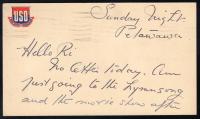 USO
Sunday Night.
Petawawa
Hello Ri
No letter today. Am
just going to the Symnsong
and the movie show after